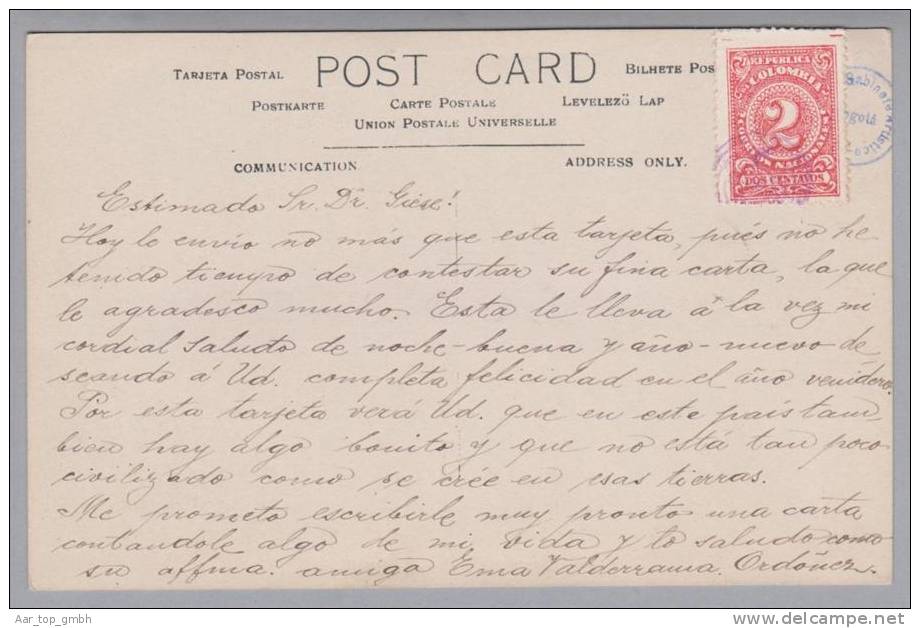 TARJETA POSTAL POST CARD BILHETE POS
POSTKARTE CARTE POSTALE LEVELEZŐ LAP
UNION POSTALE UNIVERSELLE
COMMUNICATION ADDRESS ONLY.
REPUBLICA
COLOMBIA
2
DOS CENTAVOS
Gabinete Artistico
Estimado Sr. Dr. Giese!
Hoy le envío no más que esta tarjeta, pués no he
tenido tiempo de contestar su fina carta, la que
le agradesco mucho. Esta le lleva á la vez mi
cordial saludo de noche-buena y año-nuevo de
seando á Ud. completa felicidad en el año venidero.
Por esta tarjeta verá Ud. que en este país tam
bien hay algo bonito y que no está tan poco
civilizado como se crée en esas tierras.
Me prometo escribirle muy pronto una carta
contandole algo de mi vida y lo saludo como
su affma. amiga Ema Valderrama Ordóñez.
Aar_top_gmbh
delcampe.net